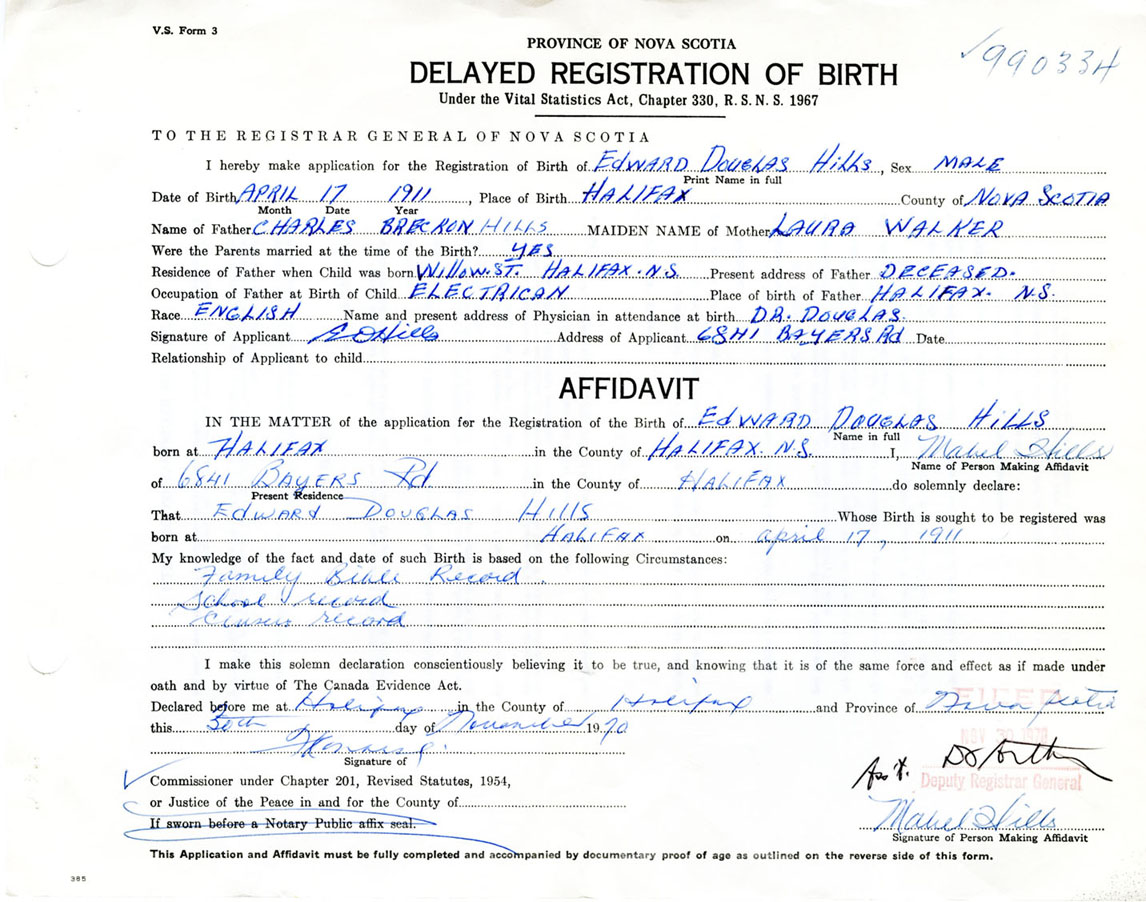 V.S. Form 3
PROVINCE OF NOVA SCOTIA
99033H
DELAYED REGISTRATION OF BIRTH
Under the Vital Statistics Act, Chapter 330, R. S. N. S. 1967
TO THE REGISTRAR GENERAL OF NOVA SCOTIA
I hereby make application for the Registration of Birth of EDWARD DOUGLAS HILLS, Sex MALE
Print Name in full
Date of Birth APRIL 17 1911, Place of Birth HALIFAX County of NOVA SCOTIA
Month Date Year
Name of Father CHARLES BRECKON HILLS MAIDEN NAME of Mother LAURA WALKER
Were the Parents married at the time of the Birth? YES
Residence of Father when Child was born Willow. ST. HALIFAX. N.S. Present address of Father DECEASED.
Occupation of Father at Birth of Child ELECTRICAN Place of birth of Father HALIFAX. N.S.
Race ENGLISH Name and present address of Physician in attendance at birth DR. DOUGLAS.
Signature of Applicant E D Hills Address of Applicant 6841 BAYERS Rd Date
Relationship of Applicant to child
AFFIDAVIT
IN THE MATTER of the application for the Registration of the Birth of EdWARD DOUGLAS HILLS
Name in full
born at HALIFAX in the County of HALIFAX. N.S. I, Mabel Hills
Name of Person Making Affidavit
of 6841 BAYERS Rd in the County of HALIFAX do solemnly declare:
Present Residence
That EDWARD DOUGLAS HILLS Whose Birth is sought to be registered was
born at HALIFAX on april 17, 1911
My knowledge of the fact and date of such Birth is based on the following Circumstances:
Family Bible Record.
School record
Census record
I make this solemn declaration conscientiously believing it to be true, and knowing that it is of the same force and effect as if made under
oath and by virtue of The Canada Evidence Act.
Declared before me at Halifax in the County of Halifax and Province of Nova Scotia
FILED
this 30th day of November 1970
NOV 30 1970
Signature of
Commissioner under Chapter 201, Revised Statutes, 1954,
Ass't.
Deputy Registrar General
or Justice of the Peace in and for the County of
If sworn before a Notary Public affix seal.
Mabel Hills
Signature of Person Making Affidavit
This Application and Affidavit must be fully completed and accompanied by documentary proof of age as outlined on the reverse side of this form.
385